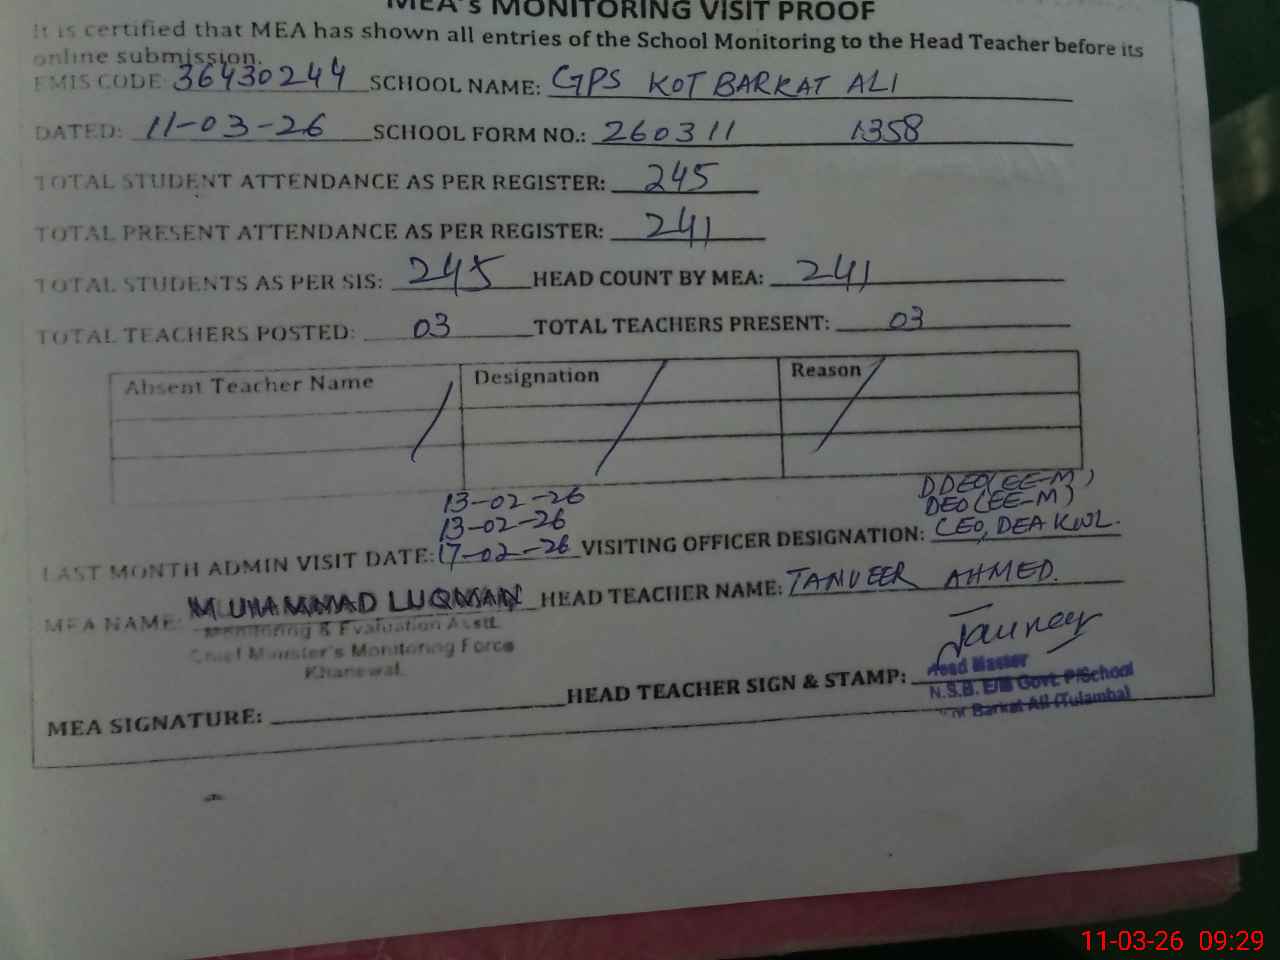 MEA's MONITORING VISIT PROOF
It is certified that MEA has shown all entries of the School Monitoring to the Head Teacher before its
online submission.
EMIS CODE: 36430244 SCHOOL NAME: GPS KOT BARKAT ALI
DATED: 11-03-26 SCHOOL FORM NO.: 260311 1358
TOTAL STUDENT ATTENDANCE AS PER REGISTER: 245
TOTAL PRESENT ATTENDANCE AS PER REGISTER: 241
TOTAL STUDENTS AS PER SIS: 245 HEAD COUNT BY MEA: 241
TOTAL TEACHERS POSTED: 03 TOTAL TEACHERS PRESENT: 03
Absent Teacher Name Designation Reason
13-02-26 DDEO(EE-M)
13-02-26 DEO(EE-M)
LAST MONTH ADMIN VISIT DATE: 17-02-26 VISITING OFFICER DESIGNATION: CEO, DEA KWL.
MEA NAME: MUHAMMAD LUQMAN HEAD TEACHER NAME: TANVEER AHMED.
Monitoring & Evaluation Asstt.
Chief Minister's Monitoring Force
Khanewal.
Tanveer
MEA SIGNATURE: HEAD TEACHER SIGN & STAMP: Head Master
N.S.B. E/M Govt. P/School
Barkat Ali (Tulamba)
11-03-26 09:29